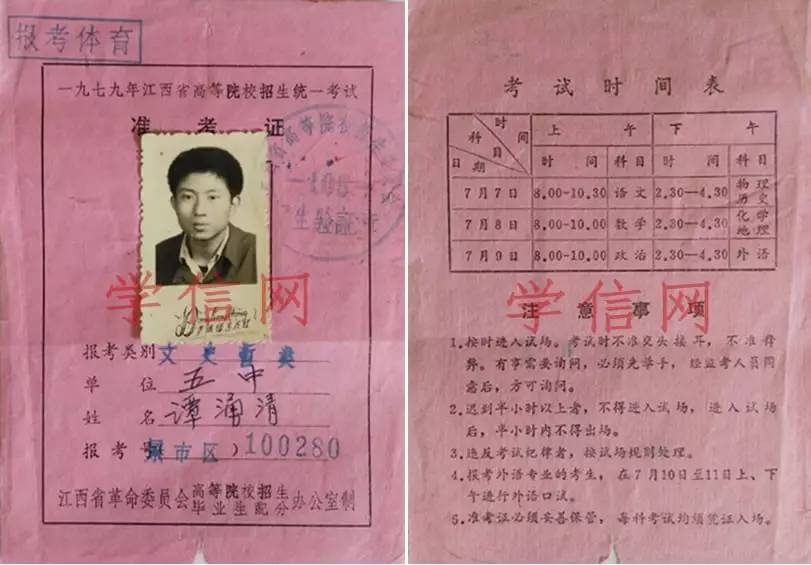 报考体育
一九七九年江西省高等院校招生统一考试
准考证
学信网
报考类别 文史哲类
单位 五中
姓名 谭涌清
报考号( 市区)100280
江西省革命委员会高等院校招生毕业生配分办公室制
考试时间表
时间 科目 日期 上午 下午
时间 科目 时间 科目
7月7日 8.00-10.30 语文 2.30—4.30 物理 历史
7月8日 8.00-10.00 数学 2.30—4.30 化学 地理
7月9日 8.00-10.00 政治 2.30—4.30 外语
学信网
注意事项
1.按时进入试场。考试时不准交头接耳,不准舞
弊。有事需要询问,必须先举手,经监考人员同
意后,方可询问。
2.迟到半小时以上者,不得进入试场,进入试场
后,半小时内不得出场。
3.违反考试纪律者,按试场规则处理。
4.报考外语专业的考生,在7月10日至11日上、下
午进行外语口试。
5.准考证必须妥善保管,每科考试均须凭证入场。